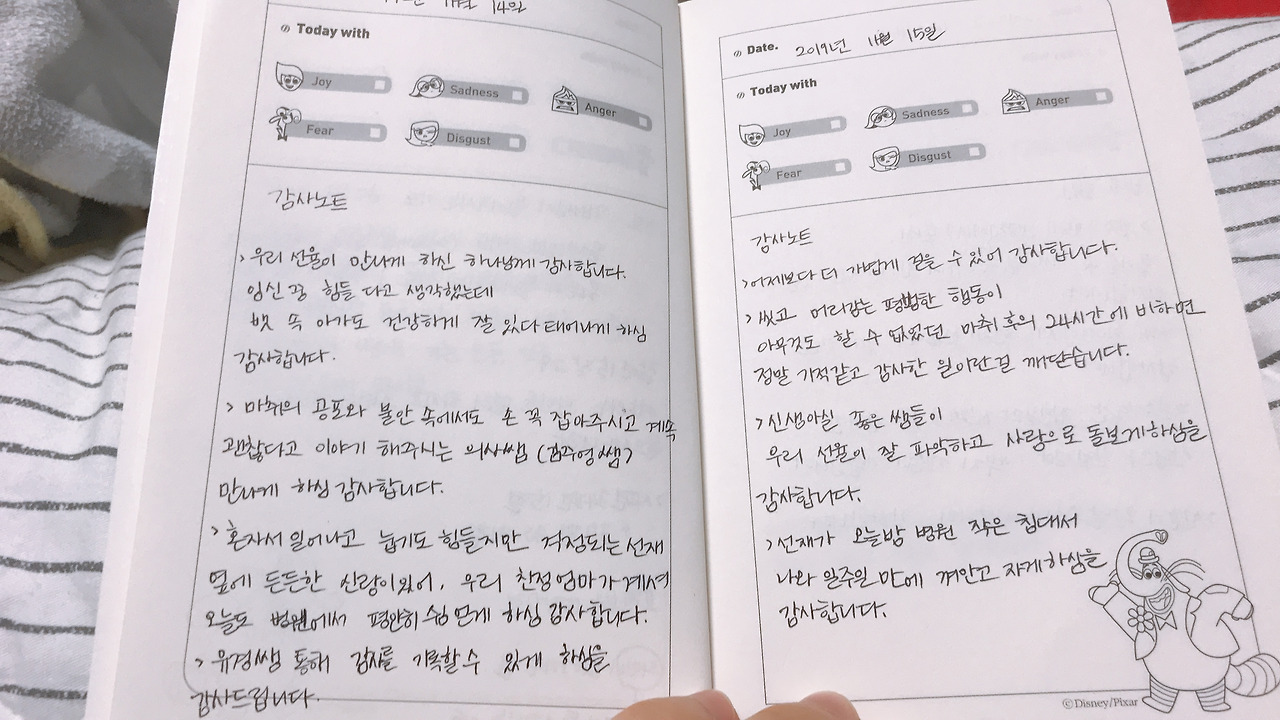 11월 14일
Today with
Joy
Sadness
Anger
Fear
Disgust
감사노트
> 우리 선율이 만나게 하신 하나님께 감사합니다.
임신 꽝 힘들 다고 생각했는데
뱃 속 아가도 건강하게 잘 있다 태어나게 하심
감사합니다.
> 마취의 공포와 불안 속에서도 손 꼭 잡아주시고 계속
괜찮다고 이야기 해주시는 의사쌤 (김주영쌤)
만나게 하심 감사합니다.
> 혼자서 일어나고 눕기도 힘들지만 걱정되는 선재
옆에 든든한 신랑이있어, 우리 친정엄마가 계셔
오늘도 병원에서 평안히 쉼 얻게 하심 감사합니다.
> 유경쌤 통해 감사를 기록할 수 있게 하심을
감사드립니다.
Date. 2019년 11월 15일
Today with
Joy
Sadness
Anger
Fear
Disgust
감사노트
> 어제보다 더 가볍게 걸을 수 있어 감사합니다.
> 씻고 머리감는 평범한 행동이
아무것도 할 수 없었던 마취 후의 24시간에 비하면
정말 기적같고 감사한 일이란걸 깨닫습니다.
> 신생아실 좋은 쌤들이
우리 선율이 잘 파악하고 사랑으로 돌보게하심을
감사합니다.
> 선재가 오늘밤 병원 작은 침대서
나와 일주일만에 껴안고 자게하심을
감사합니다.
©Disney/Pixar